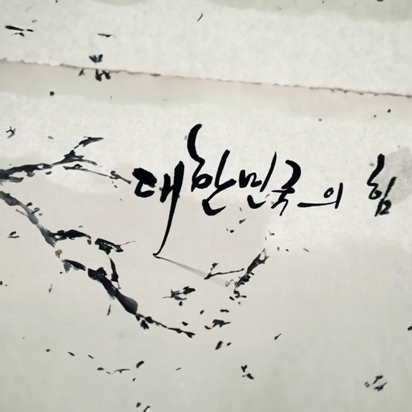 대한민국의 힘